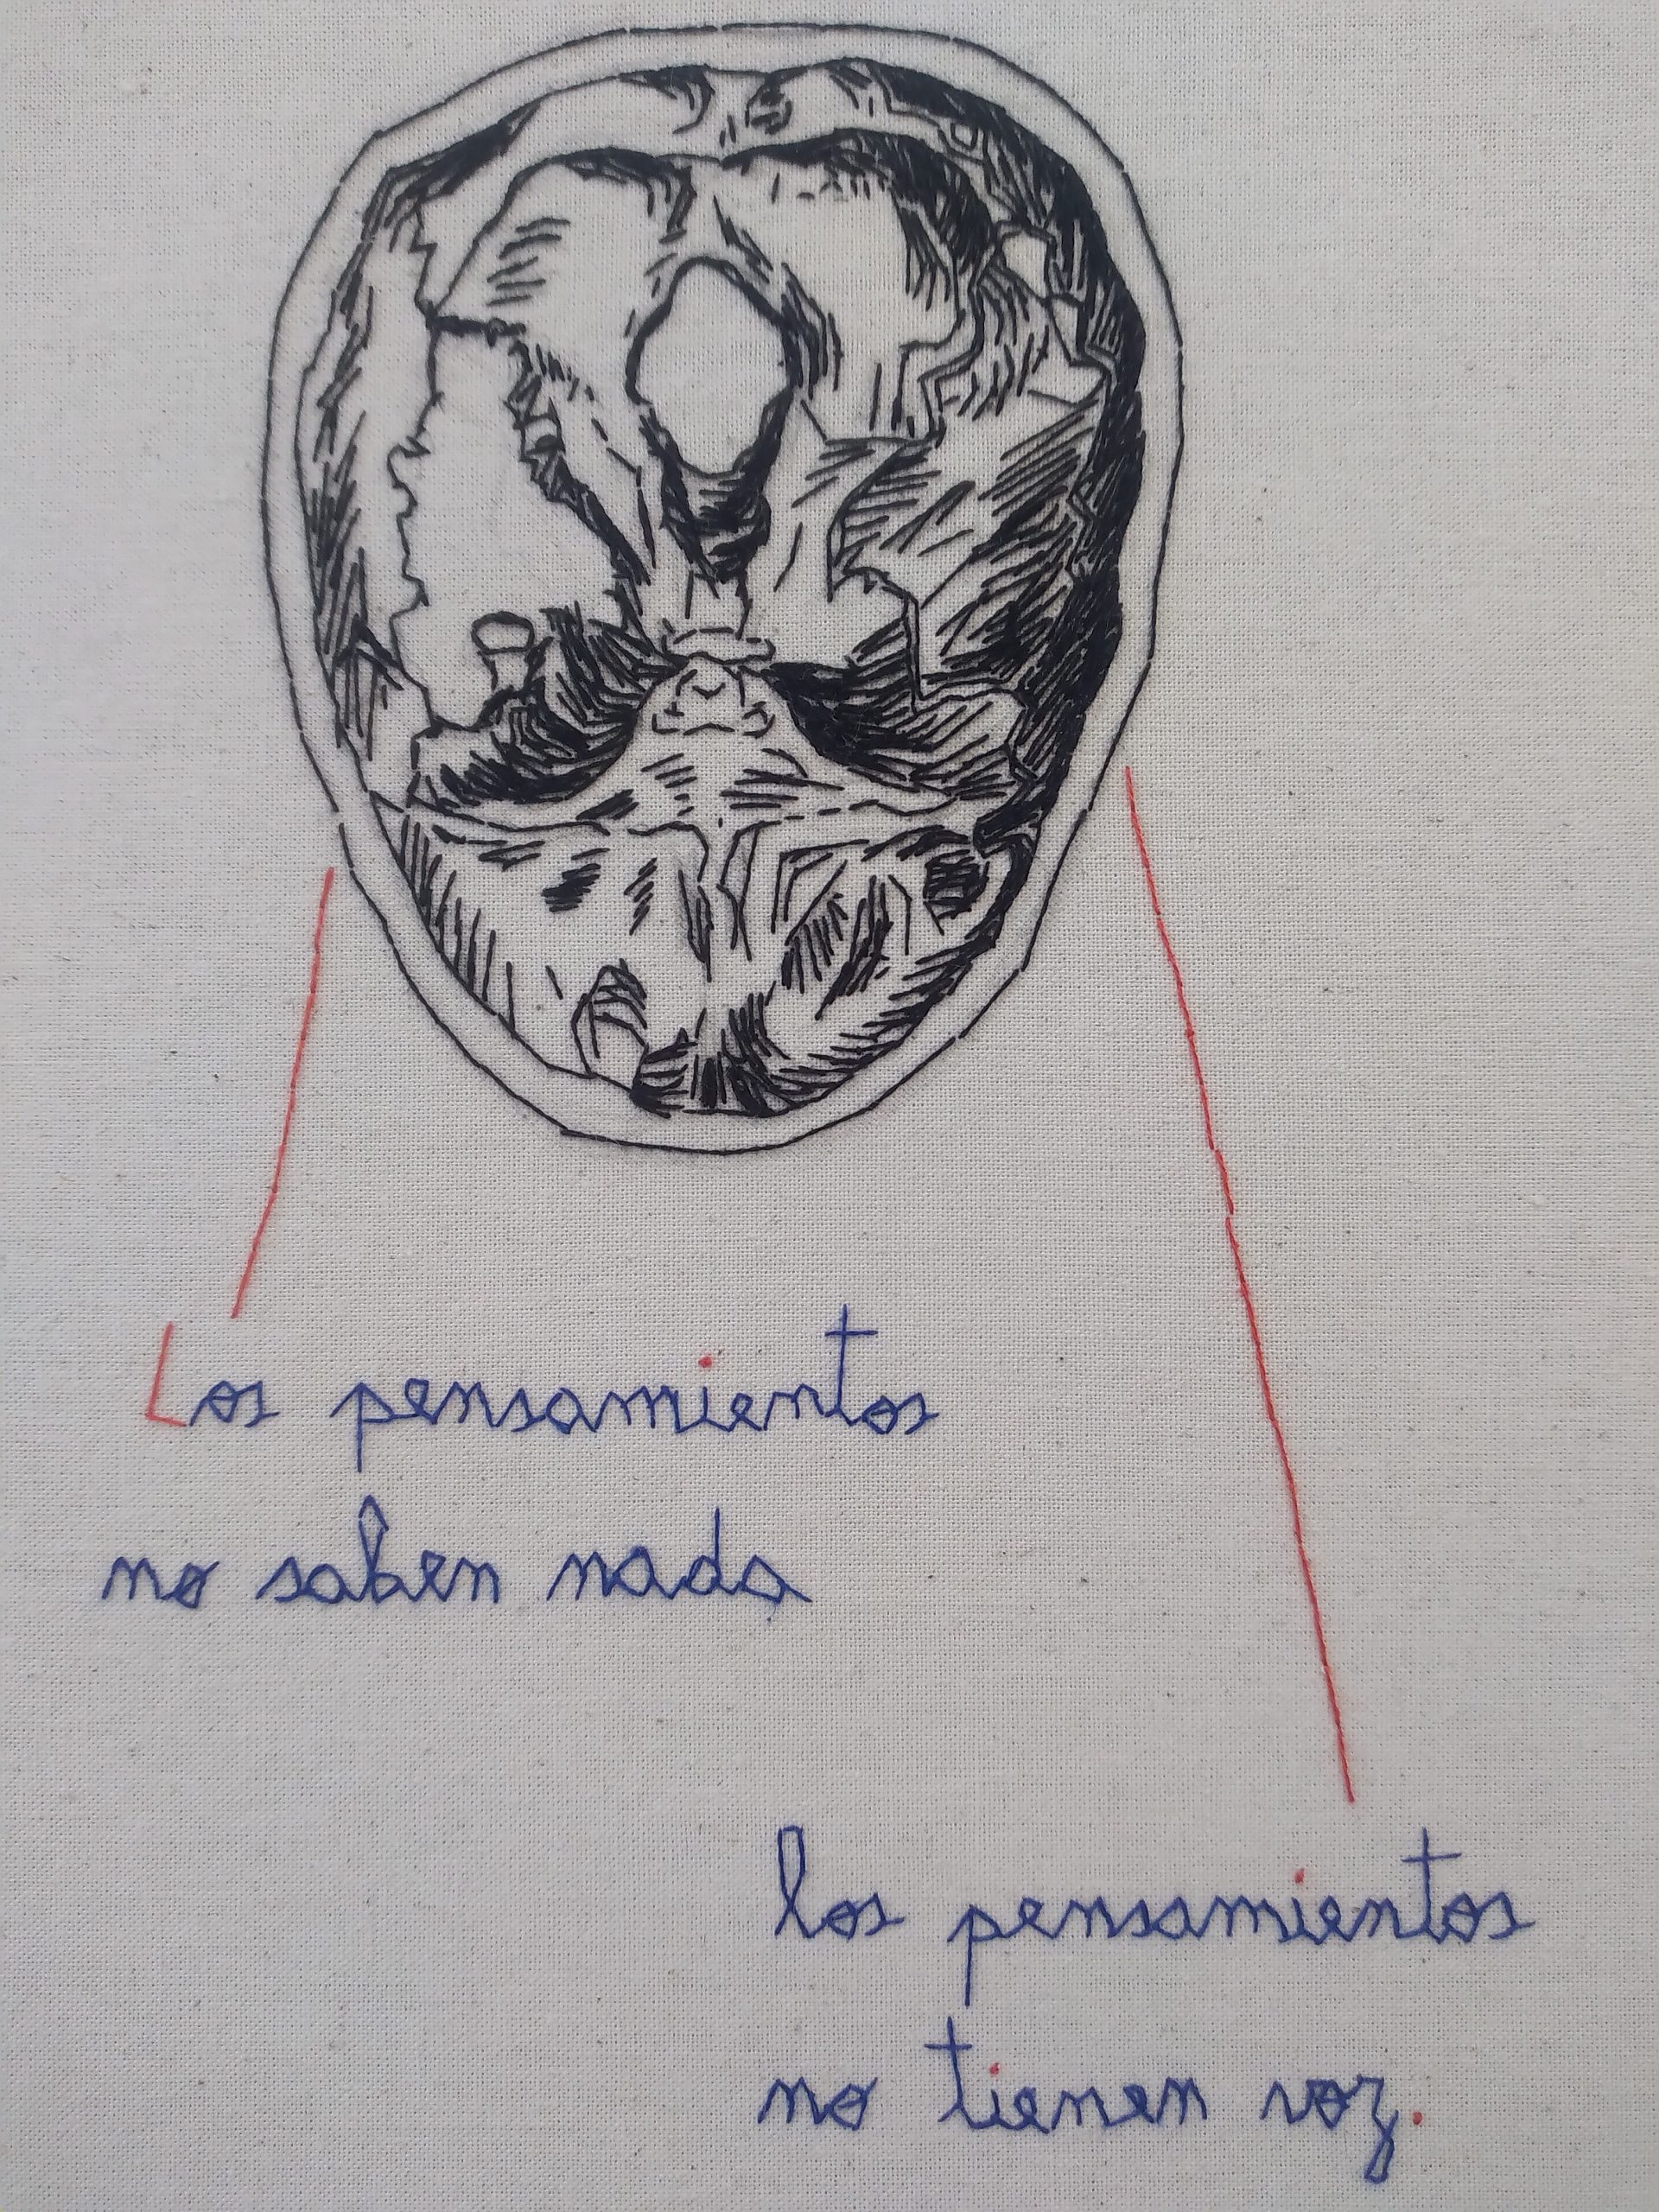 Los pensamientos
no saben nada
los pensamientos
no tienen voz.